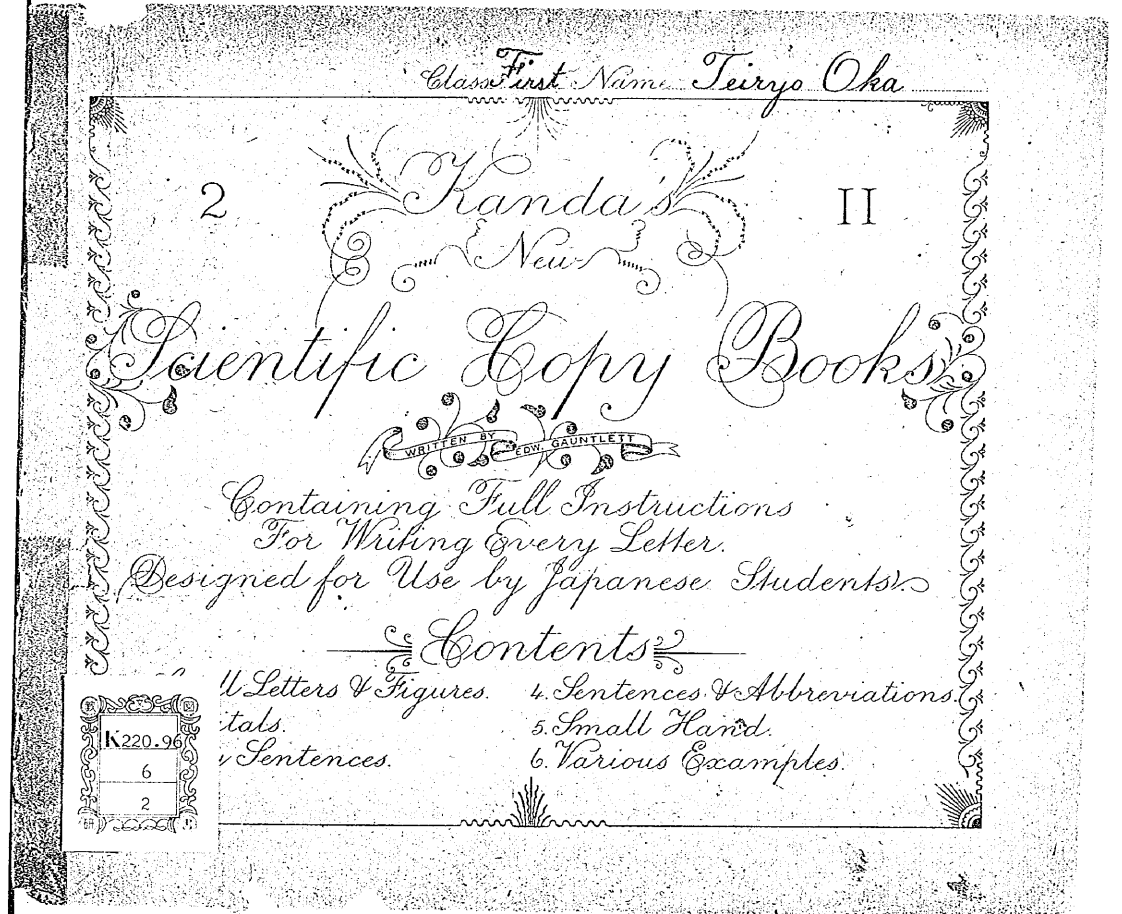 Class First Name Teiryo Oka
2 Kanda's II
New
Scientific Copy Books
WRITTEN BY EDW. GAUNTLETT
Containing Full Instructions
For Writing Every Letter.
Designed for Use by Japanese Students.
Contents
Letters & Figures. 4. Sentences & Abbreviations.
itals. 5. Small Hand.
Sentences. 6. Various Examples.
K220.96
6
2